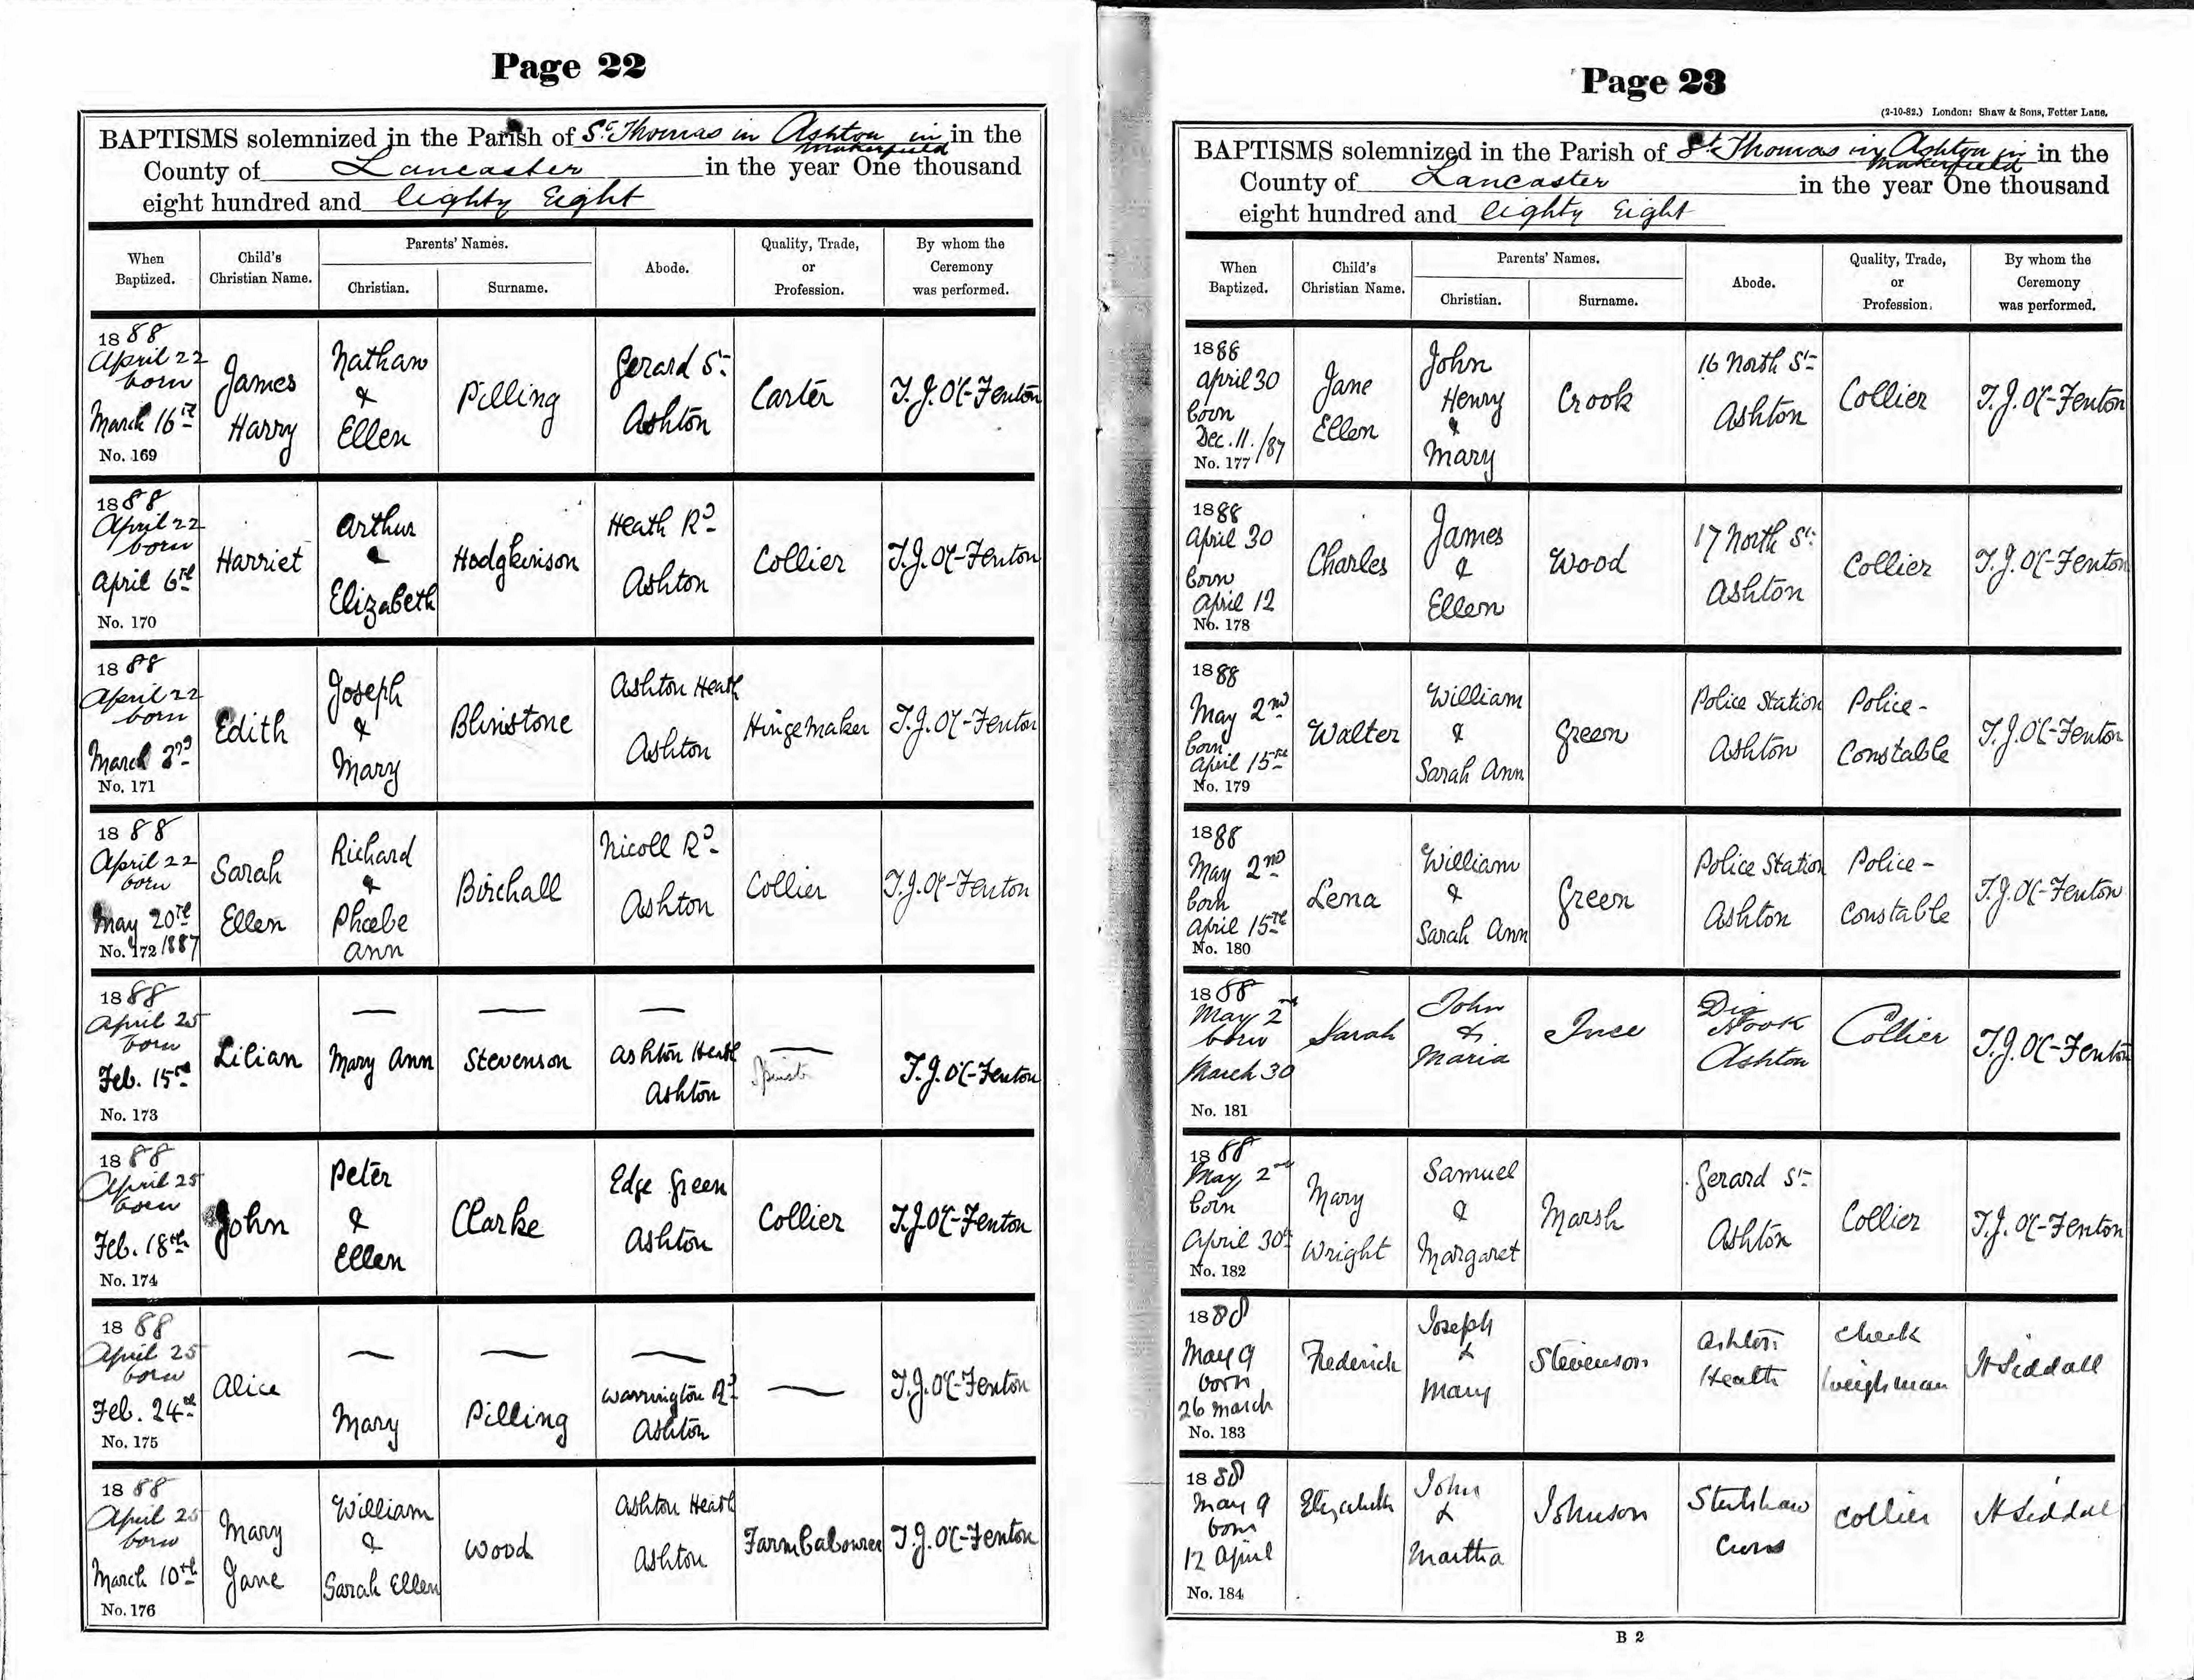 Page 22
BAPTISMS solemnized in the Parish of St Thomas in Ashton in Makerfield in the
County of Lancaster in the year One thousand
eight hundred and Eighty Eight
When Baptized.
Child's Christian Name.
Parents' Names.
Christian.
Surname.
Abode.
Quality, Trade, or Profession.
By whom the Ceremony was performed.
1888 April 22 born March 16th No. 169
James Harry
Nathan & Ellen
Pilling
Gerard St Ashton
Carter
T.J. O'C-Fenton
1888 April 22 born April 6th No. 170
Harriet
Arthur & Elizabeth
Hodgkinson
Heath Rd Ashton
Collier
T.J. O'C-Fenton
1888 April 22 born March 3rd No. 171
Edith
Joseph & Mary
Blinstone
Ashton Heath Ashton
Hinge maker
T.J. O'C-Fenton
1888 April 22 born May 20th 1887 No. 172
Sarah Ellen
Richard & Phoebe Ann
Birchall
Nicoll Rd Ashton
Collier
T.J. O'C-Fenton
1888 April 25 born Feb. 15th No. 173
Lilian
— Mary Ann
— Stevenson
— Ashton Heath Ashton
—
T.J. O'C-Fenton
1888 April 25 born Feb. 18th No. 174
John
Peter & Ellen
Clarke
Edge Green Ashton
Collier
T.J. O'C-Fenton
1888 April 25 born Feb. 24th No. 175
Alice
— Mary
— Pilling
— Warrington Rd Ashton
—
T.J. O'C-Fenton
1888 April 25 born March 10th No. 176
Mary Jane
William & Sarah Ellen
Wood
Ashton Heath Ashton
Farm Labourer
T.J. O'C-Fenton
Page 23
(2-10-82.) London: Shaw & Sons, Fetter Lane.
BAPTISMS solemnized in the Parish of St Thomas in Ashton in Makerfield in the
County of Lancaster in the year One thousand
eight hundred and Eighty Eight
When Baptized.
Child's Christian Name.
Parents' Names.
Christian.
Surname.
Abode.
Quality, Trade, or Profession.
By whom the Ceremony was performed.
1888 April 30 born Dec. 11./87 No. 177
Jane Ellen
John Henry & Mary
Crook
16 North St Ashton
Collier
T.J. O'C-Fenton
1888 April 30 born April 12 No. 178
Charles
James & Ellen
Wood
17 North St Ashton
Collier
T.J. O'C-Fenton
1888 May 2nd born April 15th No. 179
Walter
William & Sarah Ann
Green
Police Station Ashton
Police-Constable
T.J. O'C-Fenton
1888 May 2nd born April 15th No. 180
Lena
William & Sarah Ann
Green
Police Station Ashton
Police-Constable
T.J. O'C-Fenton
1888 May 2nd born March 30 No. 181
Sarah
John & Maria
Ince
Dig Nook Ashton
Collier
T.J. O'C-Fenton
1888 May 2nd born April 30th No. 182
Mary Wright
Samuel & Margaret
Marsh
Gerard St Ashton
Collier
T.J. O'C-Fenton
1888 May 9 born 26 March No. 183
Frederick
Joseph & Mary
Stevenson
Ashton Heath
Check Weighman
H Siddall
1888 May 9 born 12 April No. 184
Elizabeth
John & Martha
Johnson
Stubshaw Cross
Collier
H Siddall
B 2